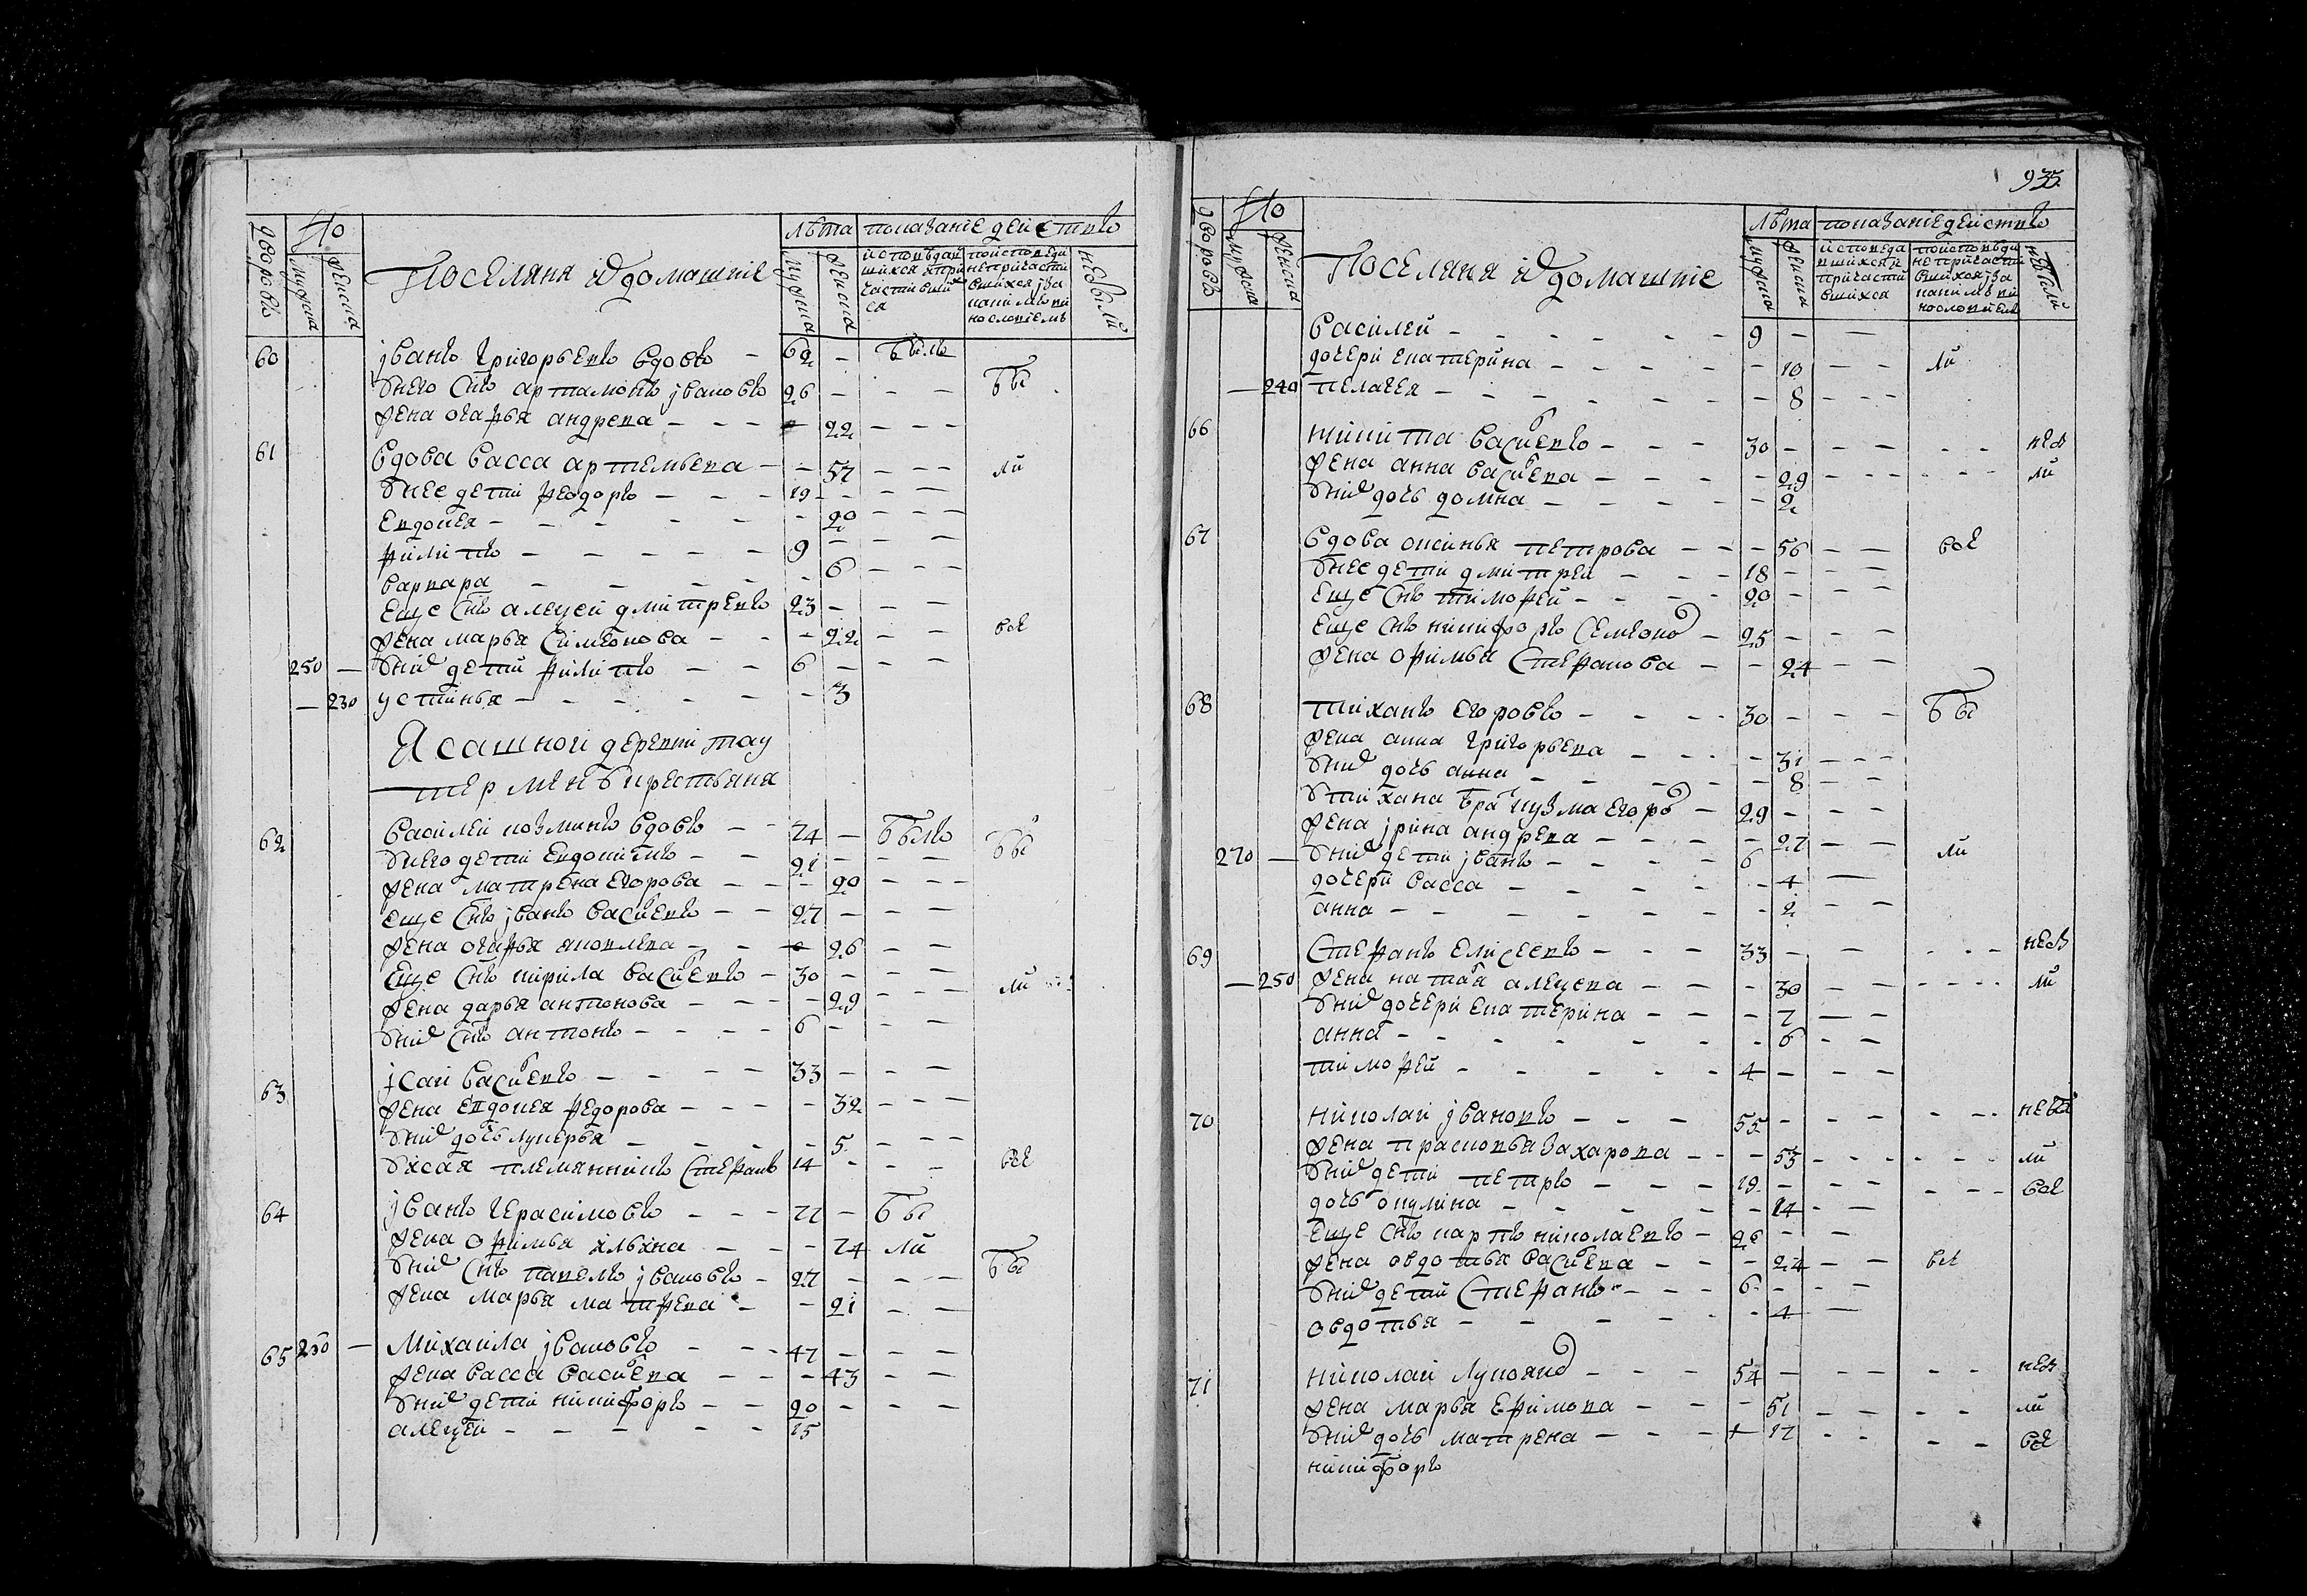 дворовъ
Чио
мужска
женска
Поселяня и домашние
Лѣта
показание действъ
мужска
женска
исповѣдавшихся и причастившихся
исповедавшихся не причастившихся
небыли
60 јванъ григорьевъ вдовъ — 62 — былъ
Унего снъ артамонъ јвановъ 26 — — — бы
жена огафья андрева — — — 22 — — —
61 вдова васса артемьева — — 57 — — — ли
Унее дети феодоръ — — — 19 — — —
евдокея — — — — 20 — — —
филипъ — — — — — 9 — — —
варвара — — — — 6 — — —
еще снъ алеѯей дмитревъ 23 — — —
жена марья симеонова — — — 22 — — все
250 — Уних дети филипъ — — 6 — — —
— 230 устинья — — — — — 3
Ясашной деревни тау
термень крестьяня
62 василей козминъ вдовъ — — 74 — былъ
Унего дети евдокимъ — — 21 — — — бы
жена матрена егорова — — — 20 — — —
еще снъ јванъ васильевъ — — 27 — — —
жена огафья яковлева — — — 26 — —
еще снъ кирила васильевъ — 30 — — —
жена дарья антонова — — — 29 — — — ли
Уних снъ антонъ — — — — 6 — — —
63 јсай васильевъ — — — — 33 — — —
жена евдокея федорова — — — — 32 — — —
Уних дочь лукерья — — — — 5 — — —
Уисая племянникъ стефанъ 14 — — — все
64 јванъ герасимовъ — — — 77 — бы
жена офимья ильина — — — 74 ли
Уних снъ павелъ јвановъ — 27 — — — бы
жена марья матфева — — 21 — —
65 250 — михаила јвановъ — — — 47 — — —
жена васса васильева — — — 43 — —
Уних дети никифоръ — — 20 — — —
алеѯей — — — — — 15
935
дворовъ
Чио
мужска
женска
Поселяня и домашние
Лѣта
показание действъ
мужска
женска
исповедавшихся и причастившихся
исповѣдавшихся не причастившихся
небыли
василей — — — — — — 9 — —
дочери екатерина — — — — — — 10 — — ли
— 240 пелагея — — — — — — — 8 — — —
66 никита васильевъ — — — 30 — — — — — неб
жена анна васильева — — — — — 29 — — — — — — ли
Уних дочь домна — — — — — 2
67 вдова оксинья петрова — — — 56 — — все
Унее дети дмитрей — — — 18 — — —
еще снъ тимофей — — — — 20 — — —
еще снъ никифоръ семено — 25 — — —
жена офимья стефанова — — 24 — —
68 тиханъ егоровъ — — — — 30 — — — бы
жена анна григорьева — — — — 31 — — —
Уних дочь анна — — — — — — 8 — —
Утихана бра кузма егоро — 29 — — —
жена јрина андрева — — — — — 27 — —
270 — Уних дети јванъ — — — — 6 ли
дочери васса — — — — — — 4 —
анна — — — — — — — 2 — —
69 стефанъ елисеевъ — — — 33 — — — — неб
— 250 жена наталя алеѯева — — — — 30 — — — — — — ли
Уних дочери екатерина — — — — 7 — —
анна — — — — — — — 6 — —
тимофей — — — — — — 4 — — —
70 николай јвановъ — — — — 55 — — — — — небы
жена прасковья захарова — — — 53 — — — — — — ли
Уних дети петръ — — — 19 — — — — — — все
дочь окулина — — — — — — 14 — —
еще снъ карпъ николаевъ — 26 — —
жена овдотья васильева — — — 24 — — все
Уних дети стефанъ — — — 6 — —
овдотья — — — — — — 4 —
71 николай лукоянo — — — 54 — — — — — неб
жена марья ефимова — — — 51 — — — — ли
Уних дочь матрена — — — 17 — — — — все
никифоръ